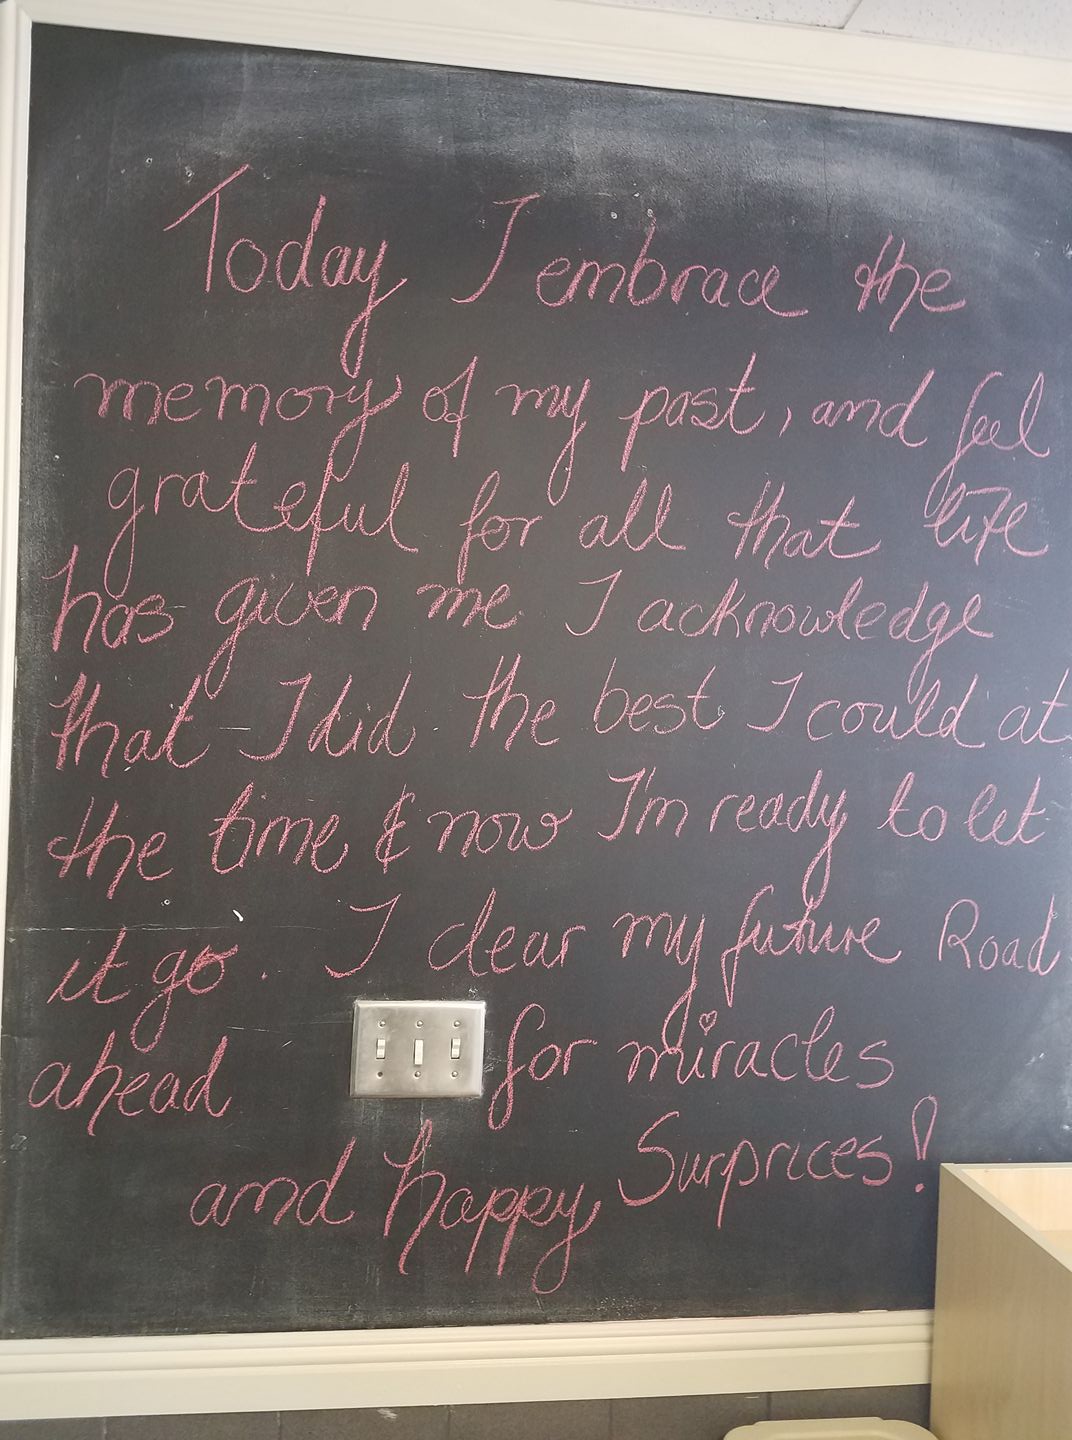 Today I embrace the
memory of my past, and feel
grateful for all that life
has given me I acknowledge
that I did the best I could at
the time & now I'm ready to let
it go. I clear my future Road
ahead for miracles
and happy Surprices!